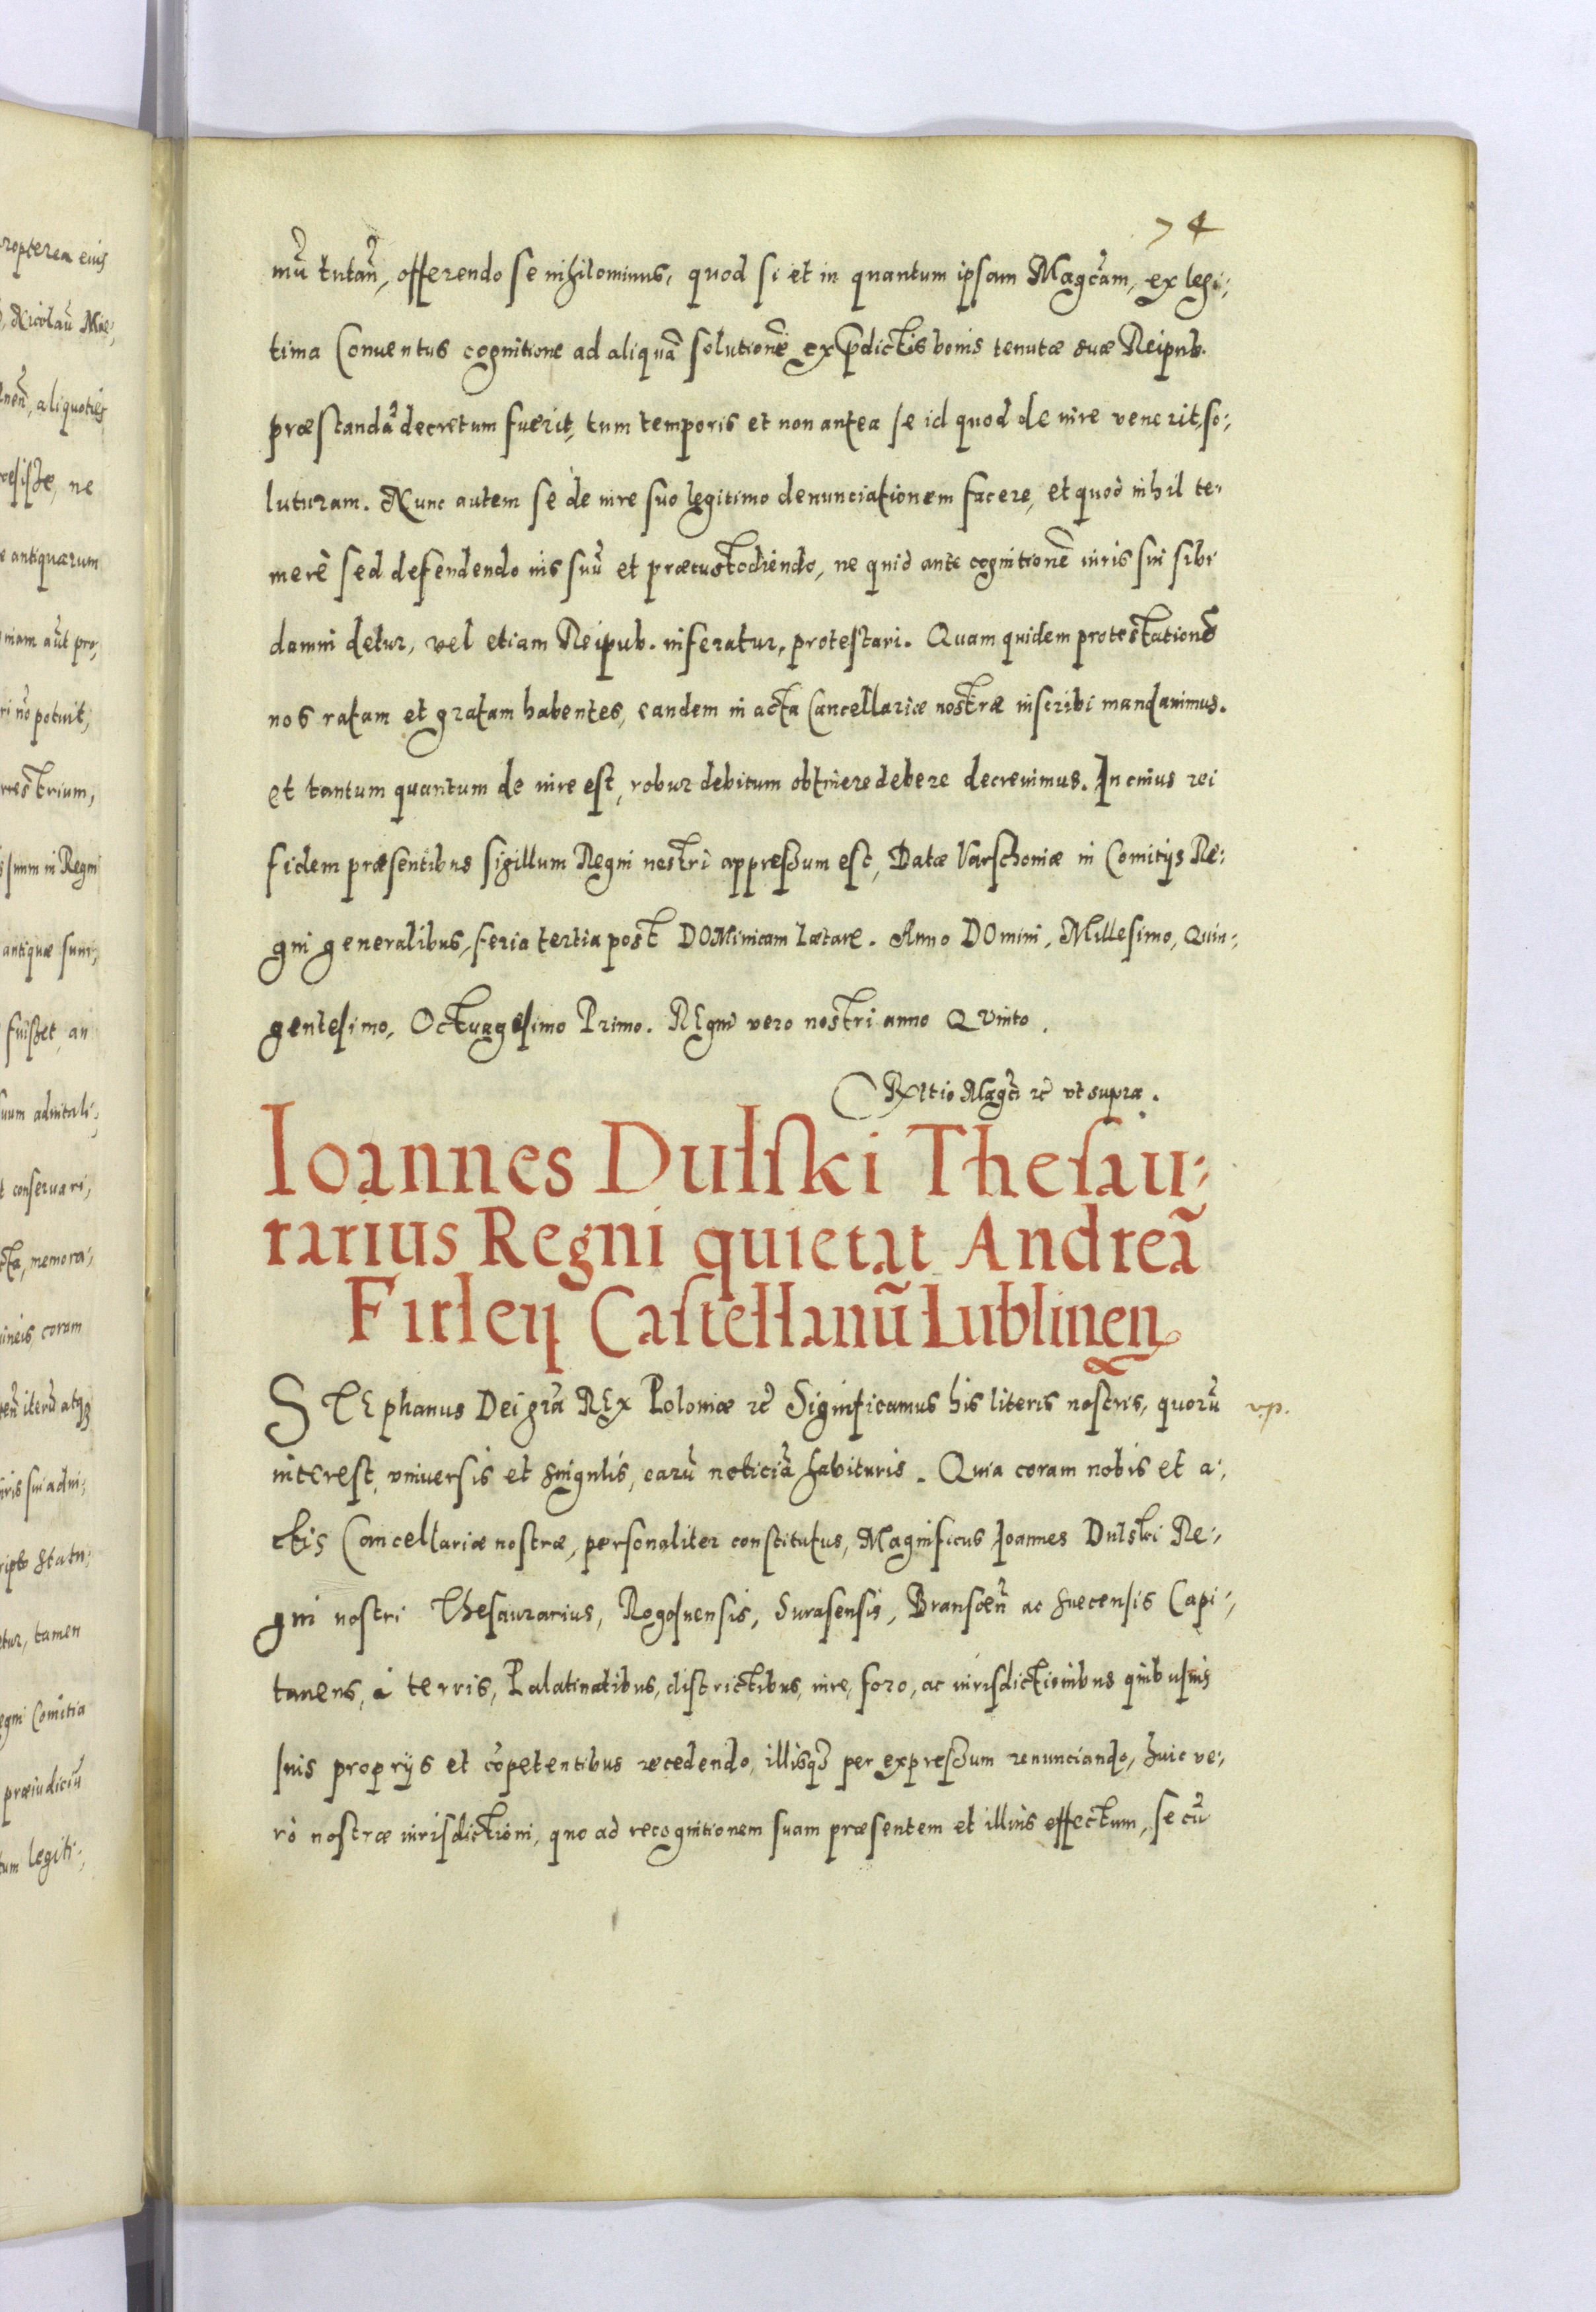 74
mũ tutañ, offerendo se nihilominus, quod si et in quantum ipsam Magcãm, ex legi,,
tima Conuentus cognitione ad aliquã solutionẽ ex p̃dictis bonis tenutæ suæ Reipub.
præstandã decretum fuerit, tum temporis et non antea se id quod de iure venerit, so,,
luturam. Nunc autem se de iure suo legitimo denunciationem facere, et quod nihil te,
merè sed defendendo ius suũ et præcustodiendo, ne quid ante cognitionẽ iuris sui sibi
damni detur, vel etiam Reipub. inferatur, protestari. Quam quidem protestationẽ
nos ratam et gratam habentes, eandem in acta Cancellariæ nostræ inscribi mandauimus.
et tantum quantum de iure est, robur debitum obtinere debere decreuimus. In cuius rei
fidem præsentibus sigillum Regni nostri appressum est, Datæ Varschouiæ in Comitijs Re,,
gni generalibus, feria tertia post DOMinicam Lætare. Anno DOmini, Millesimo, Quin,,
gentesimo, Octuagesimo Primo. REgni vero nostri anno QVinto.
Rltio Magci rc vt supra.
Ioannes Dulski Thesau,,
rarius Regni quietat Andreã
Firleij Castellanũ Lublineñ
STEphanus Dei grã REx Poloniæ rc Significamus his literis nostris, quorũ
vp.
interest, vniuersis et singulis, earũ noticiã habituris. Quia coram nobis et a,,
ctis Cancellariæ nostræ, personaliter constitutus, Magnificus Ioannes Dulski Re,,
gni nostri Thesaurarius, Rogosnensis, Surasensis, Branscеñ ac Suecensis Capi,,
taneus, à terris, Palatinatibus, districtibus, iure, foro, ac iurisdictionibus quibusuis
suis proprijs et cõpetentibus recedendo, illisq3 per expressum renunciando, huic ve,,
rò nostræ iurisdictioni, quo ad recognitionem suam præsentem et illius effectum, se cũ